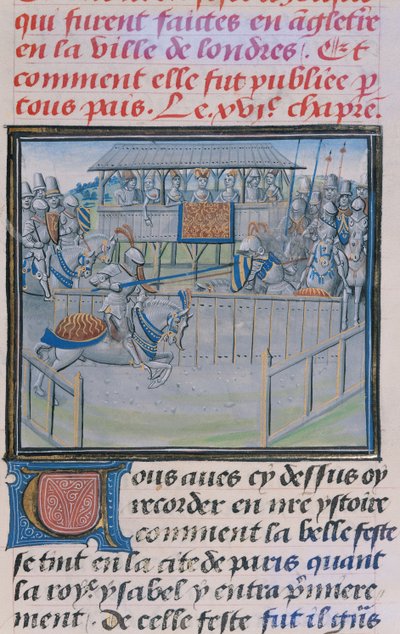 qui furent faictes en angletre
en la ville de londres. Et
comment elle fut publiee p
tous pais. Le xvie. chapre.
Vous aues cy dessus oy
recorder en nre ystoire
comment la belle feste
se tint en la cite de paris quant
la royne ysabel y entra pmiere
ment. de celle feste fut il